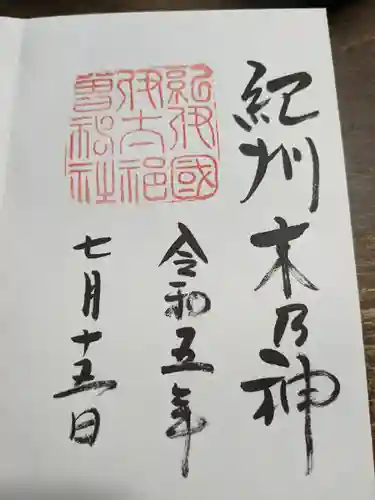 紀州木乃神
令和五年
七月十五日
紀伊國
伊太祁
曽神社